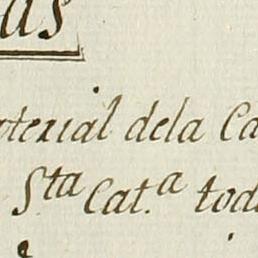 as
terial dela Ca
Sta Cat.a tod